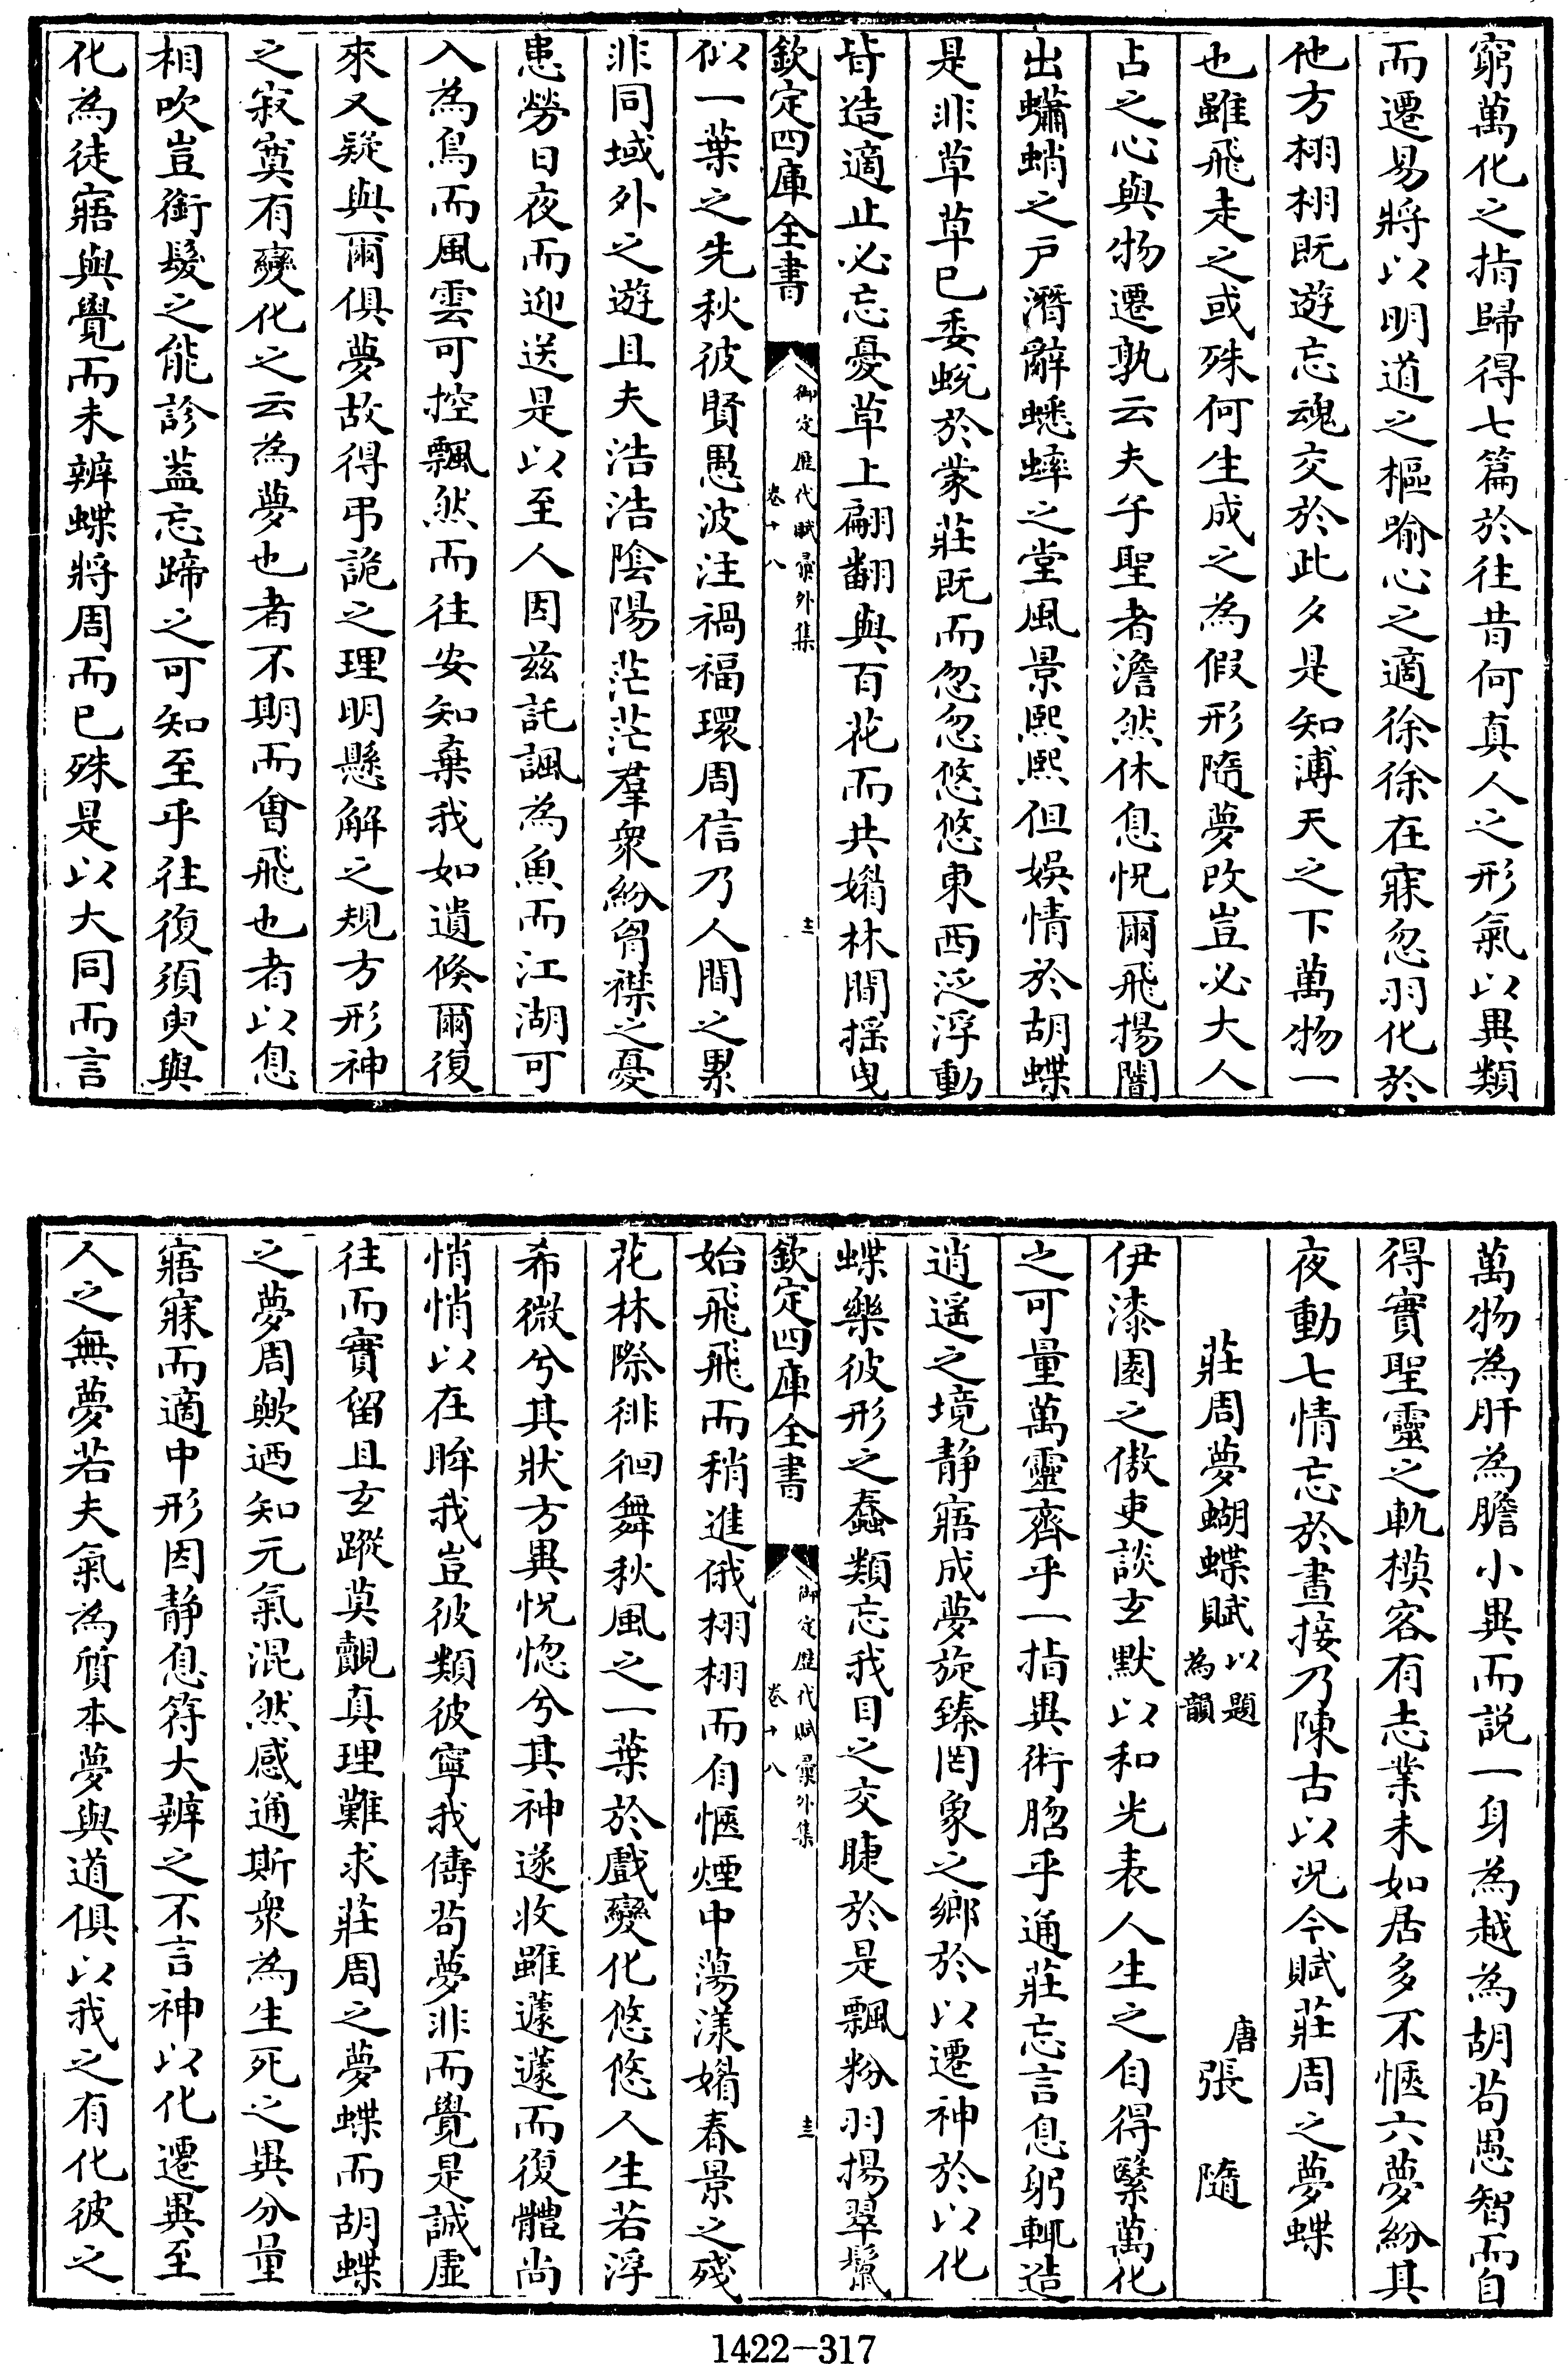 窮萬化之指歸得七篇於往昔何真人之形氣以異類
而遷易將以明道之樞喻心之適徐徐在寐忽羽化於
他方栩栩既遊忘魂交於此夕是知溥天之下萬物一
也雖飛走之或殊何生成之為假形隨夢改豈必大人
占之心與物遷孰云夫子聖者澹然休息怳爾飛揚闇
出蠨蛸之戶潛辭蟋蟀之堂風景熙熙但娛情於胡蝶
是非草草已委蛻於蒙莊既而忽忽悠悠東西泛浮動
皆造適止必忘憂草上翩翻與百花而共媚林間搖曳
欽定四庫全書
御定歷代賦彙外集
卷十八
似一葉之先秋彼賢愚波注禍福環周信乃人間之累
非同域外之遊且夫浩浩陰陽茫茫羣眾紛胷襟之憂
患勞日夜而迎送是以至人因茲託諷為魚而江湖可
入為鳥而風雲可控飄然而往安知棄我如遺倏爾復
來又疑與爾俱夢故得弔詭之理明懸解之規方形神
之寂寞有變化之云為夢也者不期而會飛也者以息
相吹豈銜髮之能診葢忘蹄之可知至乎往復須臾與
化為徒寤與覺而未辨蝶將周而已殊是以大同而言
萬物為肝為膽小異而說一身為越為胡茍愚智而自
得實聖靈之軌模客有志業未如居多不愜六夢紛其
夜動七情忘於晝接乃陳古以況今賦莊周之夢蝶
莊周夢蝴蝶賦以題為韻
唐張隨
伊漆園之傲吏談玄默以和光表人生之自得繄萬化
之可量萬靈齊乎一指異術胳乎通莊忘言息躬輒造
逍遥之境靜寤成夢旋臻罔象之鄉於以遷神於以化
蝶樂彼形之蠢類忘我目之交睫於是飄粉羽揚翠鬛
欽定四庫全書
御定歷代賦彙外集
卷十八
始飛飛而稍進俄栩栩而自愜煙中蕩漾媚春景之殘
花林際徘徊舞秋風之一葉於戲變化悠悠人生若浮
希微兮其狀方異怳惚兮其神遂收雖蘧蘧而復體尚
悄悄以在眸我豈彼類彼寧我儔茍夢非而覺是誠虛
往而實留且玄蹤莫覿真理難求莊周之夢蝶而胡蝶
之夢周歟迺知元氣混然感通斯眾為生死之異分量
寤寐而適中形因靜息符大辨之不言神以化遷異至
人之無夢若夫氣為質本夢與道俱以我之有化彼之
1422-317